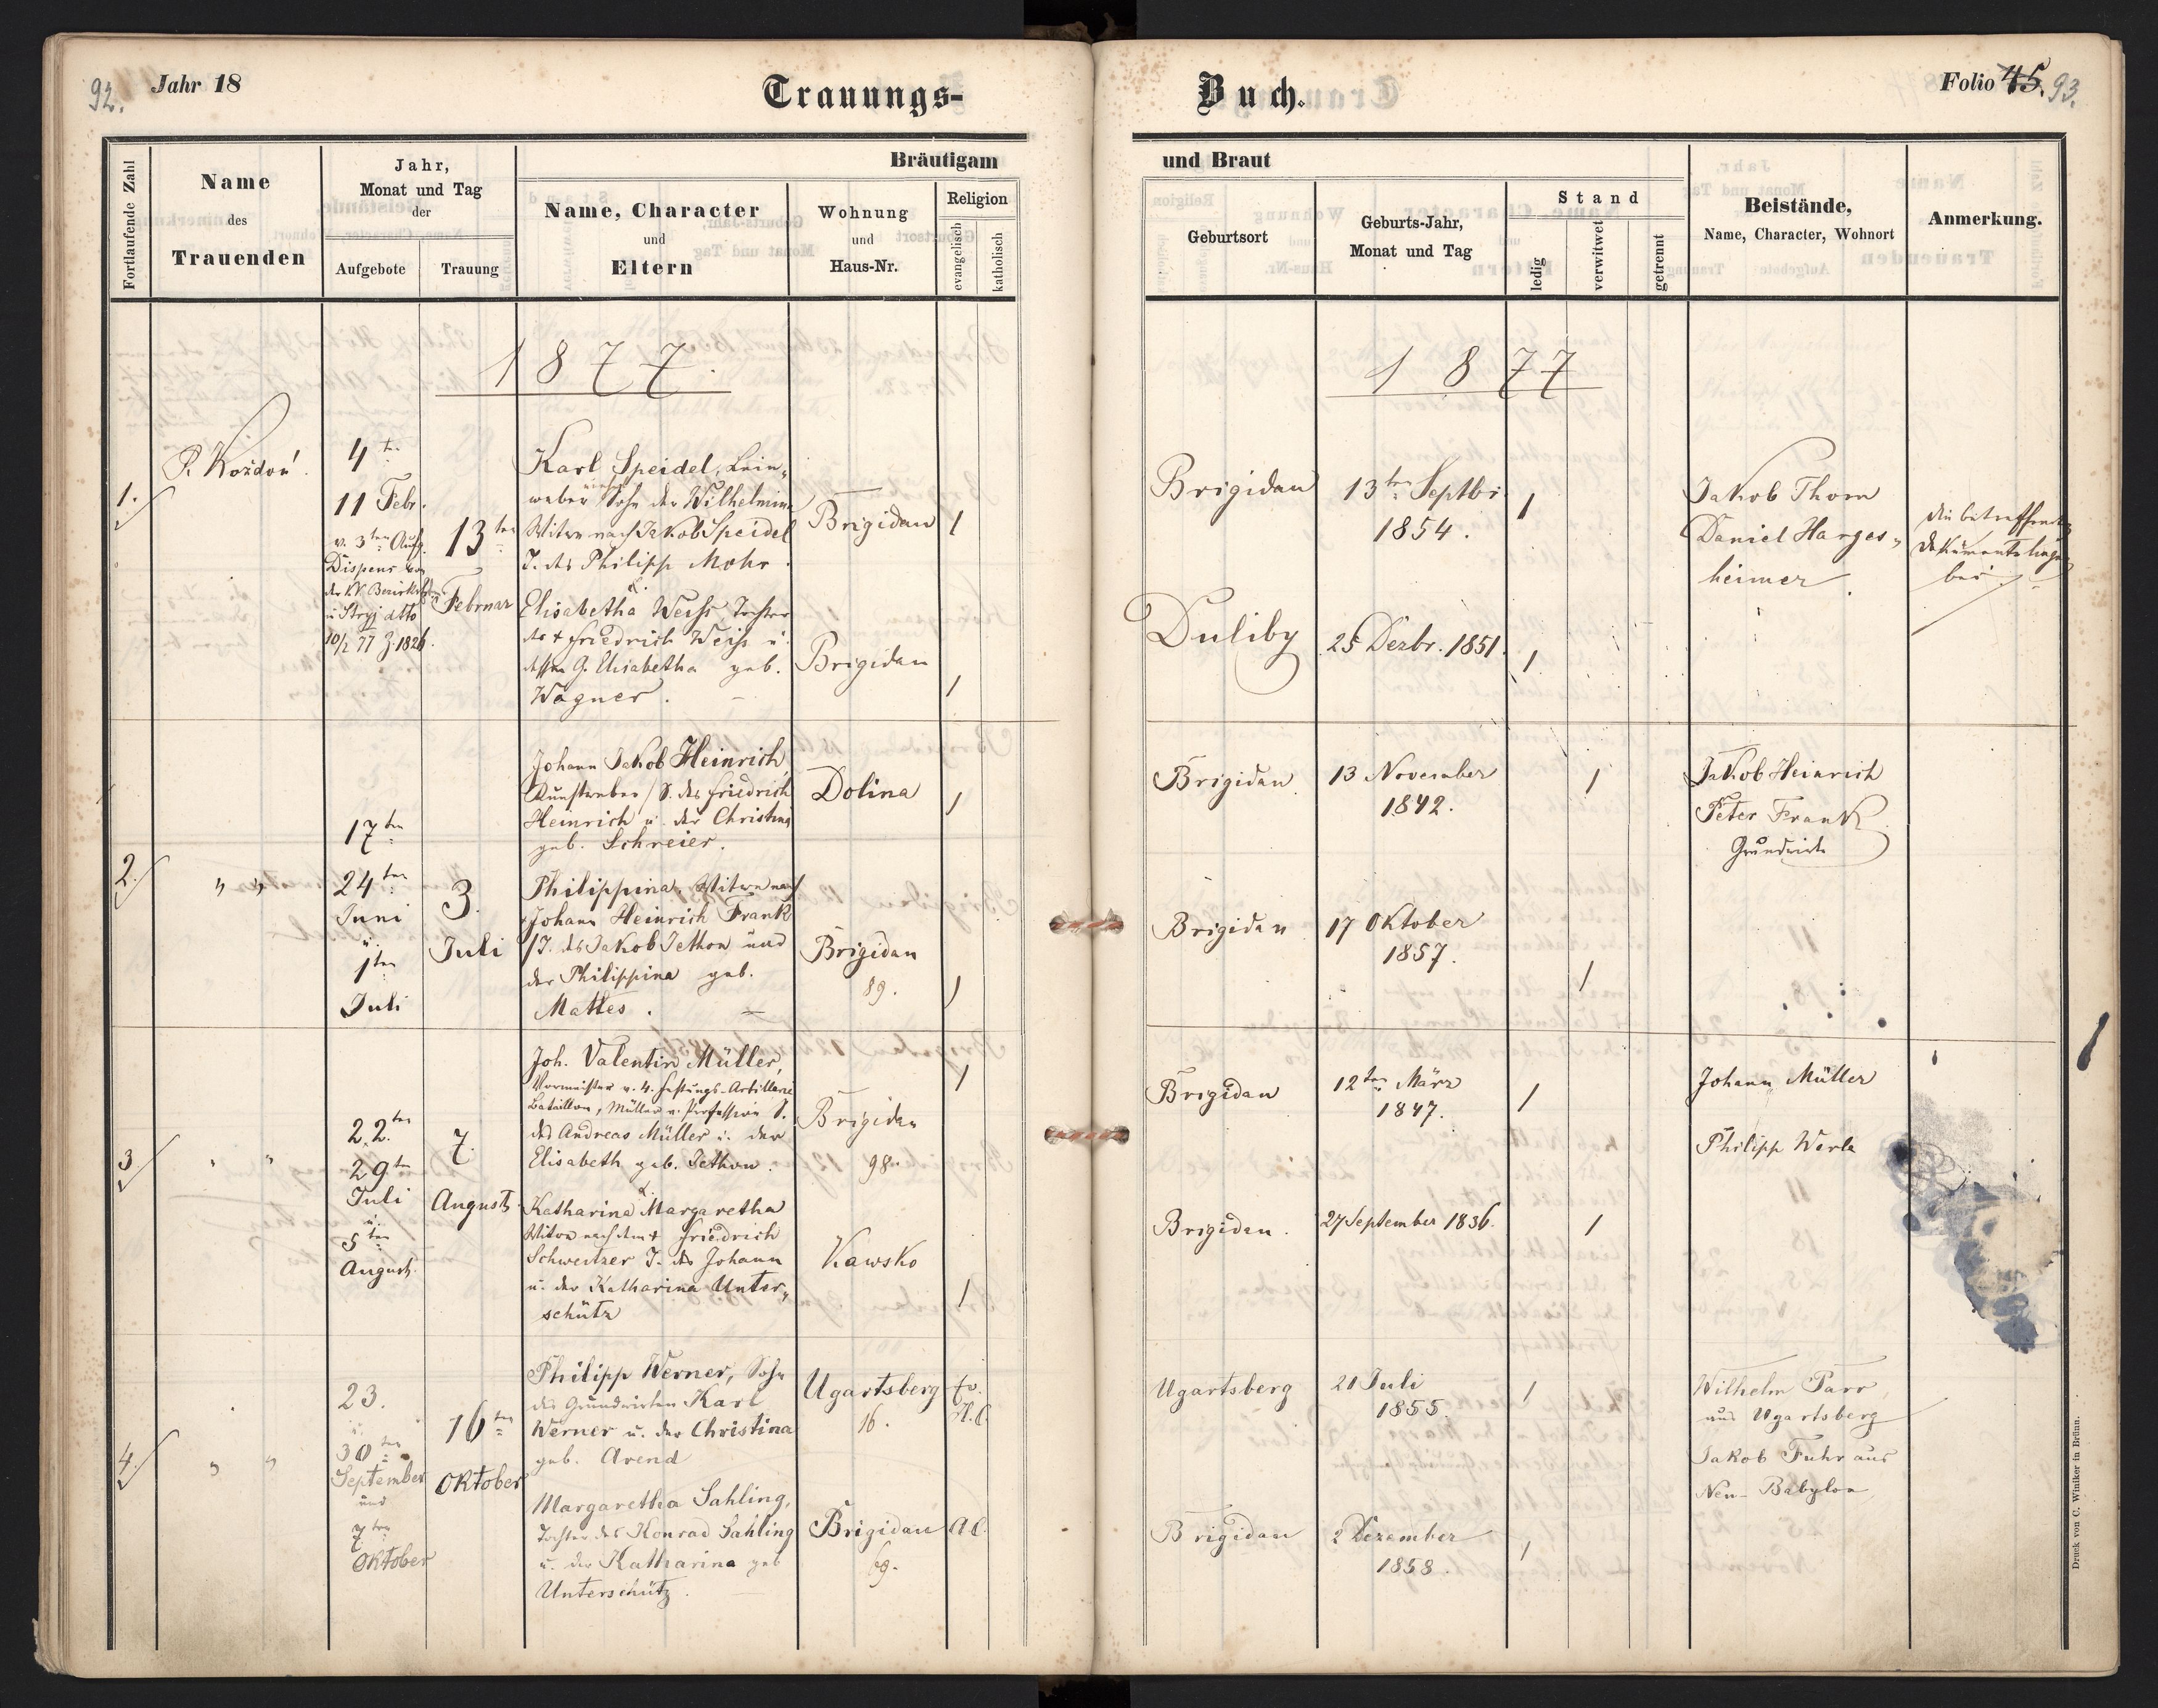 92.
Jahr 18
Trauungs-
Fortlaufende Zahl
Name
des
Trauenden
Jahr,
Monat und Tag
der
Aufgebote
Trauung
Bräutigam
Name, Character
und
Eltern
Wohnung
und
Haus-Nr.
Religion
evangelisch
katholisch
1877.
1.
P. Kożdoń
4ten
11 Febr.
v. 3ten Aufg.
Dispens von
in Stryj dtto
10/2 77 Z. 1826.
13ten
Februar
Karl Speidel, Lein-
weber Sohn der Wilhelmine
Witwe nach Jakob Speidel
T. des Philipp Mohr
&
Elisabetha Weiss, Tochter
des + Friedrich Weiss u.
dessen G. Elisabetha geb.
Wagner.
Brigidau
1
Brigidau
1
2.
" "
17ten
24ten
Juni
u.
1ten
Juli
3.
Juli
Johann Jakob Heinrich,
Kunstweber / S. des Friedrich
Heinrich u. der Christina
geb. Schreier.
Philippina, Witwe nach
Johann Heinrich Frank
/T. des Jakob Jethon und
der Philippina geb.
Mattes.
Dolina
1
Brigidau
89.
1
3
" "
22.ten
29ten
Juli
u.
5ten
August.
7.
August.
Joh. Valentin Müller,
Vormeister v. 4. Festungs-Artillerie
Bataillon, Müller v. Profession S.
des Andreas Müller u. der
Elisabeth geb. Jethon.
&
Katharina Margaretha
Witwe nach dem + Friedrich
Schweitzer T. des Johann
u. der Katharina Unter-
schütz
Brigidau
98.
1
Kawsko
1
4.
" "
23.
u.
30ten
September
und
7ten
Oktober
16ten
Oktober
Philipp Werner, Sohn
des Grundwirten Karl
Werner u. der Christina
geb. Arend
Margaretha Sahling,
Tochter des Konrad Sahling
u. der Katharina geb
Unterschütz.
Ugartsberg
16.
Ev.
H. C.
Brigidau
69.
A.C.
Buch.
Folio 45. 93.
und Braut
Geburtsort
Geburts-Jahr,
Monat und Tag
Stand
ledig
verwitwet
getrennt
Beistände,
Name, Character, Wohnort
Anmerkung.
1877
Brigidau
13ten Septbr.
1854.
1
Jakob Thom
Daniel Harges-
heimer.
die betreffenden
Dokumente liegen
bei
Duliby
25 Dezbr. 1851.
1
Brigidau.
13 November
1842.
1
Jakob Heinrich
Peter Frank
Grundwirte
Brigidau
17 Oktober
1857.
1
Brigidau
12ten März
1847.
1
Johann Müller
Philipp Werle
Brigidau.
27 September 1836.
1
Ugartsberg
21 Juli
1855.
1
Wilhelm Parr
aus Ugartsberg
Jakob Fuhr aus
Neu-Babylon
Brigidau
2 Dezember
1858.
1
Druck von C. Winiker in Brünn.